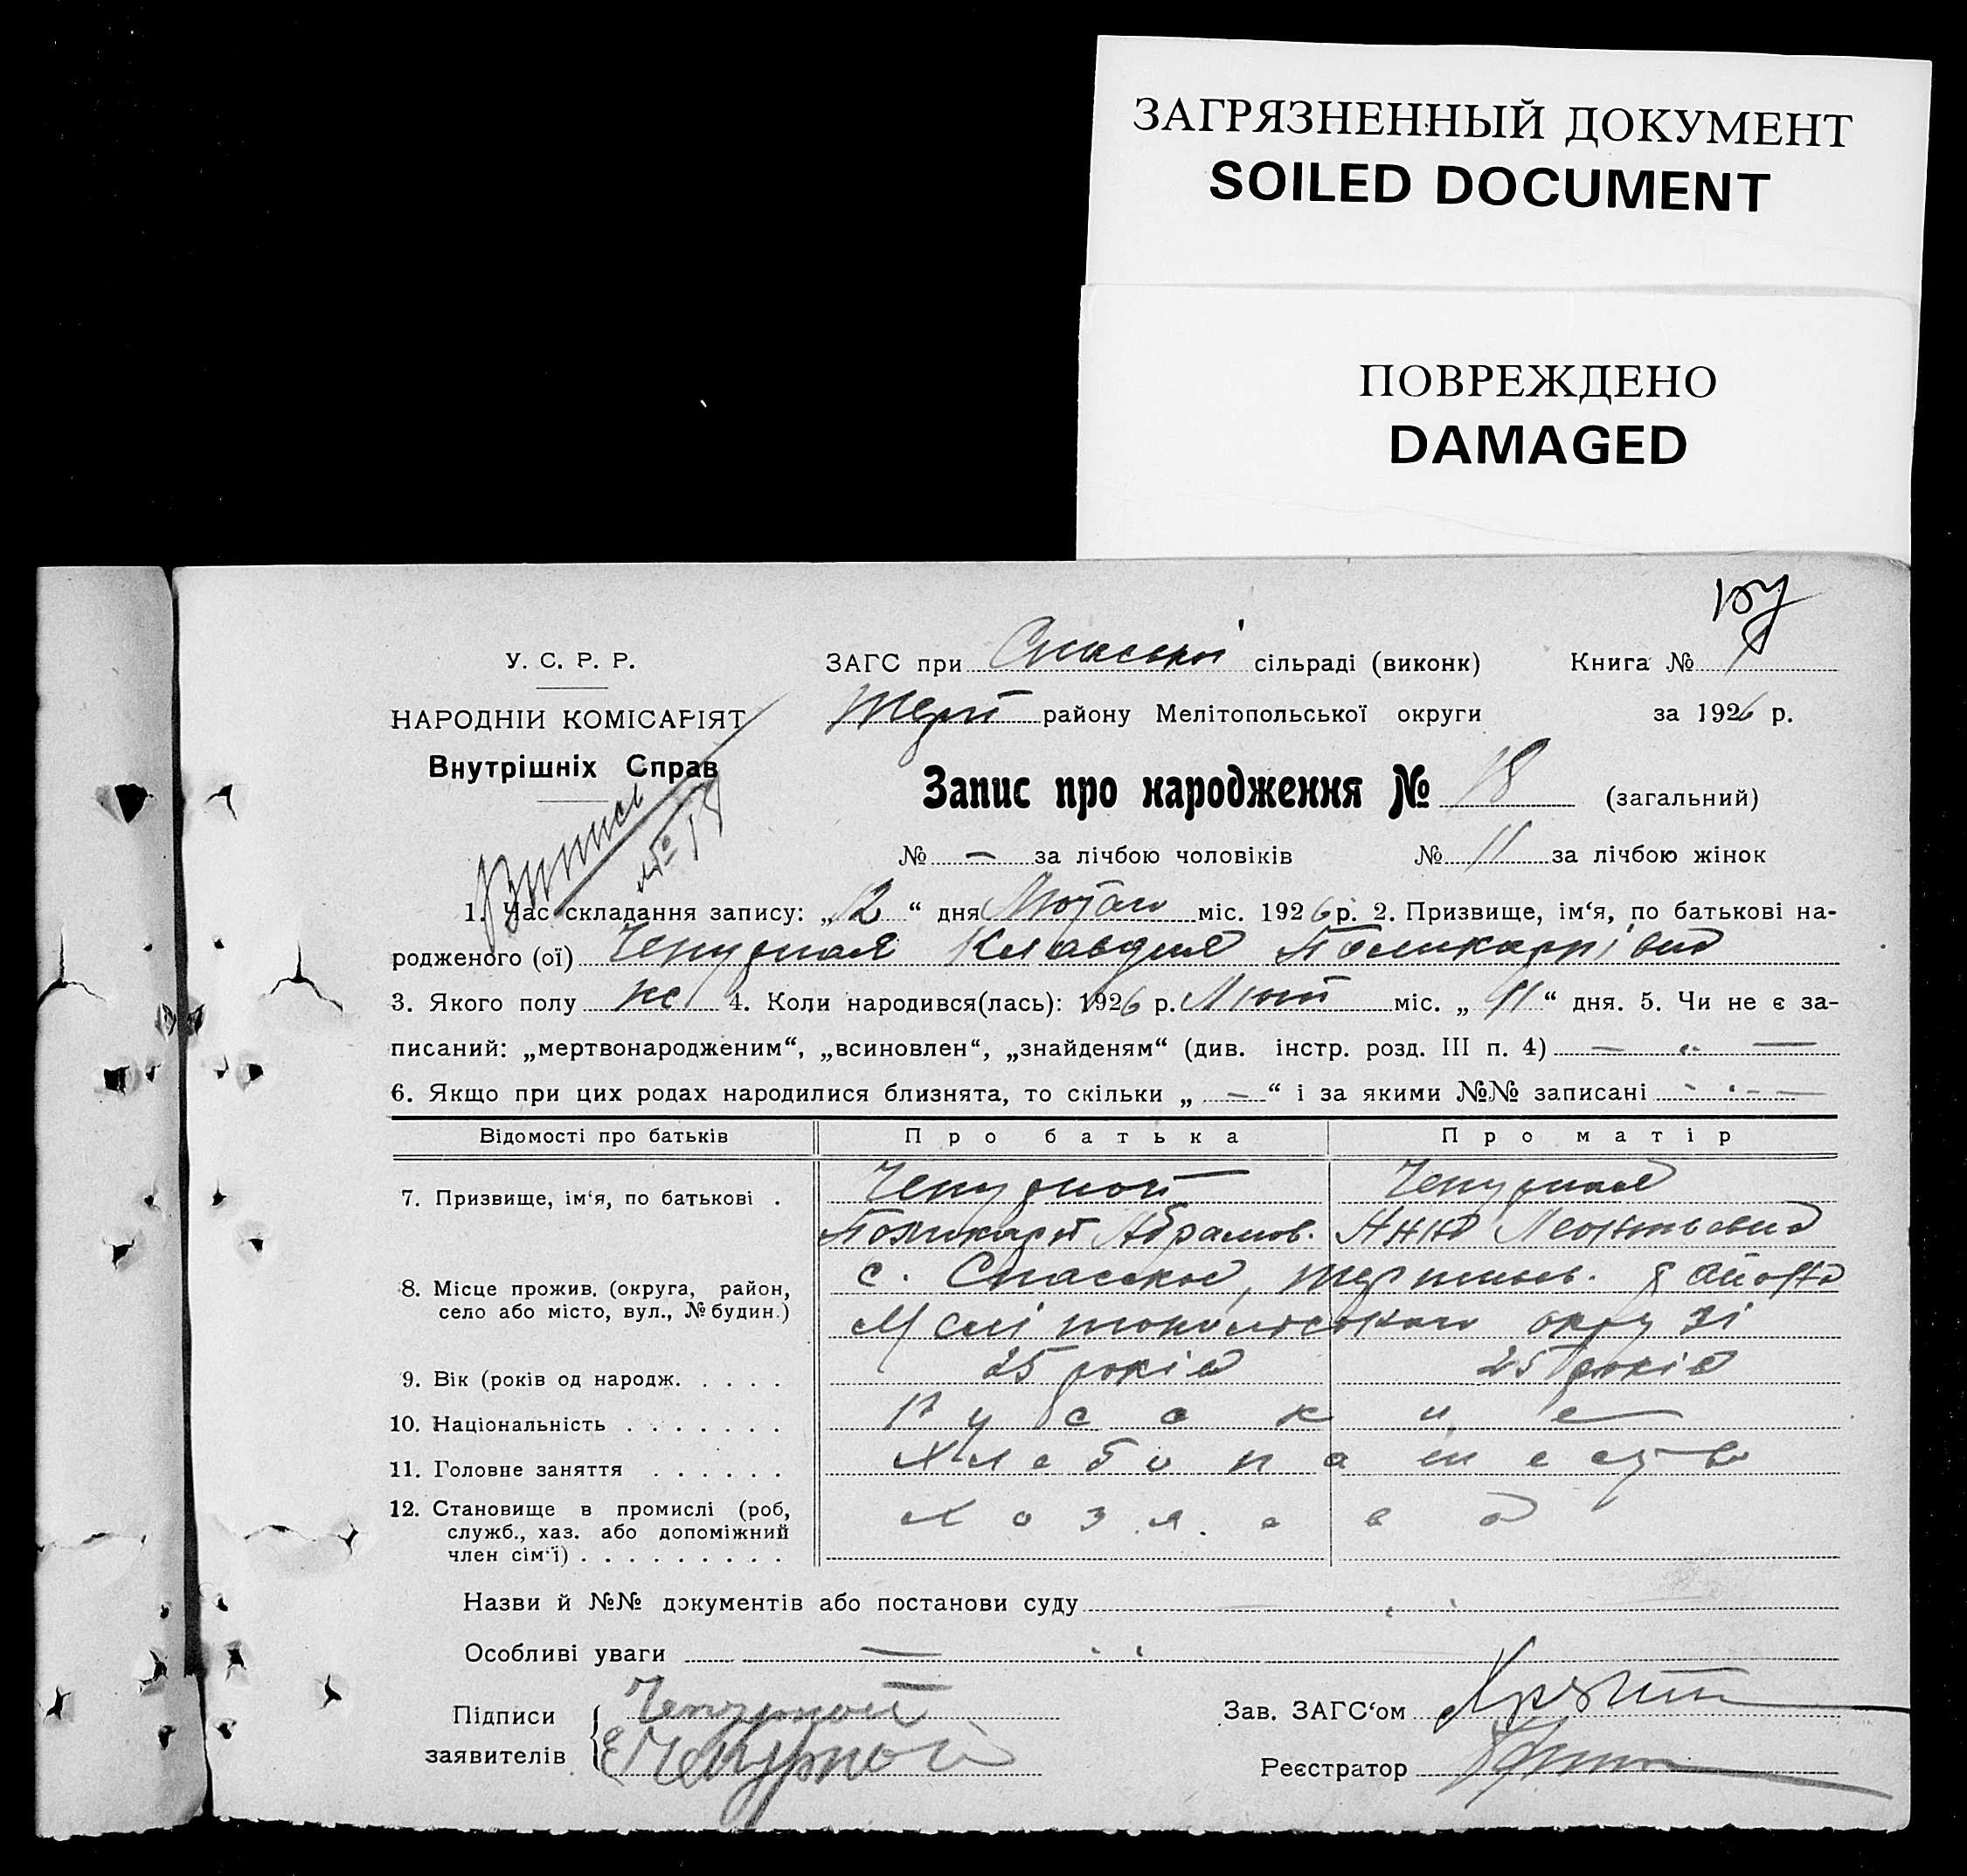 ЗАГРЯЗНЕННЫЙ ДОКУМЕНТ
SOILED DOCUMENT
ПОВРЕЖДЕНО
DAMAGED
У. С. Р. Р.
ЗАГС при Спаській сільраді (виконк) Книга №
НАРОДНІЙ КОМІСАРІЯТ
Терп району Мелітопольської округи за 1926 р.
Внутрішніх Справ
Запис про народження № 18 (загальний)
Випись
№ 18
№ — за лічбою чоловіків № 11 за лічбою жінок
1. Час складання запису: „12“ дня Лютого міс. 1926 р. 2. Призвище, ім‘я, по батькові на-
родженого (ої) Чепурная Клавдия Поликарпівна
3. Якого полу же 4. Коли народився(лась): 1926 р. Лют міс. „11“ дня. 5. Чи не є за-
писаний: „мертвонародженим“, „всиновлен“, „знайденям“ (див. інстр. розд. III п. 4) —
6. Якщо при цих родах народилися близнята, то скільки „—“ і за якими №№ записані —
Відомості про батьків Про батька Про матір
7. Призвище, ім‘я, по батькові . Чепурной Чепурная
Поликарп Абрамов. Анна Леонтьевна
8. Місце прожив. (округа, район, с. Спаское, района
село або місто, вул., № будин.) Мелітопольського округі
9. Вік (років од народж. . . . . 25 років 25 років
10. Національність . . . . . . . Русакие
11. Головне заняття . . . . . . Хлебопашество
12. Становище в промислі (роб,
служб., хаз. або допоміжний
член сім‘ї) . . . . . . . . .
Назви й №№ документів або постанови суду
Особливі уваги —
Підписи Чепурной
заявителів Чепурной
Зав. ЗАГС‘ом
Реєстратор